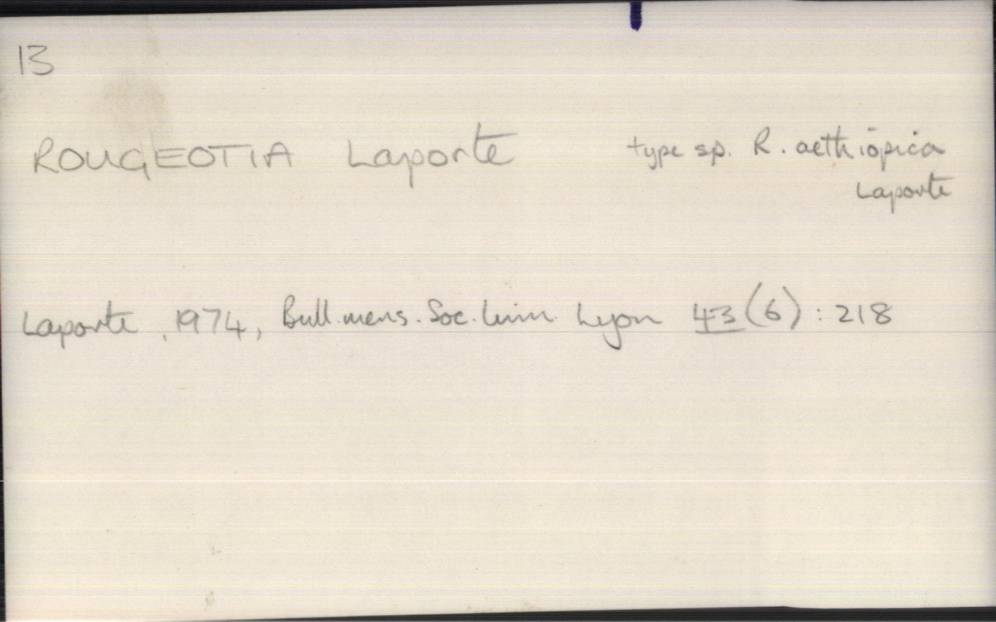 13
ROUGEOTIA Laporte type sp. R. aethiopica
Laporte
Laporte, 1974, Bull. mens. Soc. linn. Lyon 43(6): 218